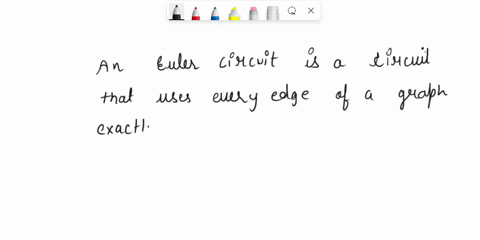 An Euler circuit is a circuit
that uses every edge of a graph
exactl